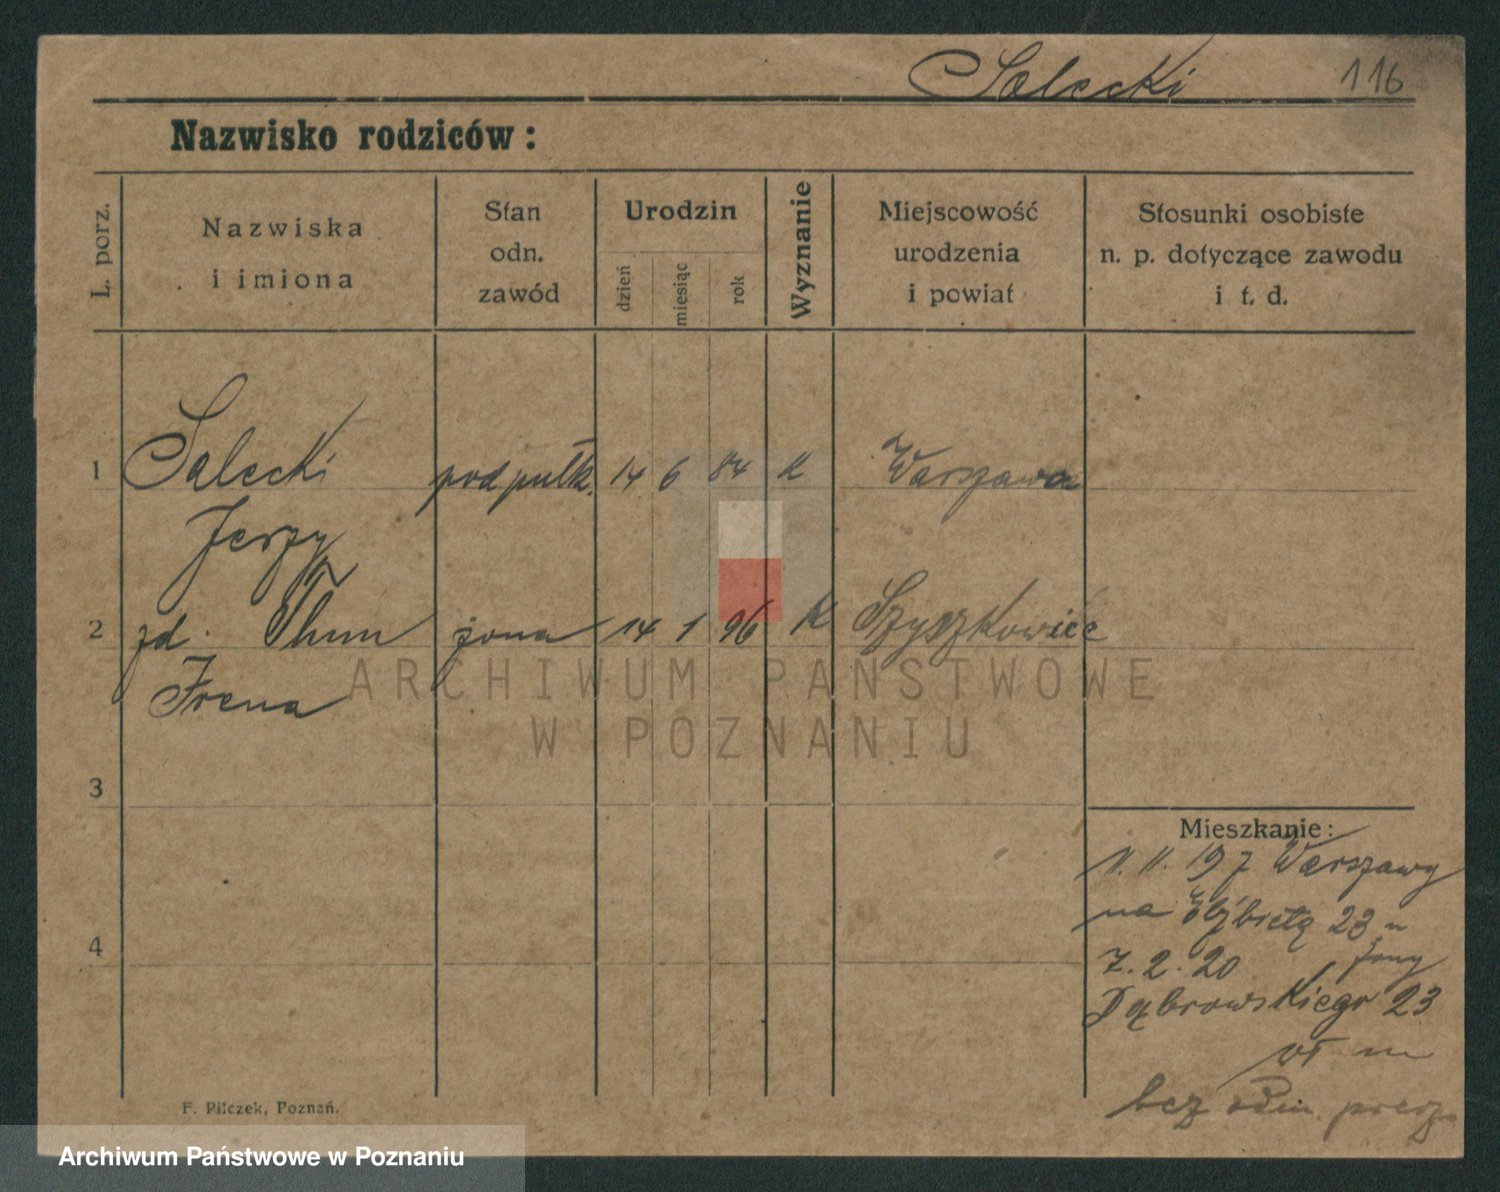 Salecki 116
Nazwisko rodziców:
L. porz.
Nazwiska
i imiona
Stan
odn.
zawód
Urodzin
dzień
miesiąc
rok
Wyznanie
Miejscowość
urodzenia
i powiat
Stosunki osobiste
n. p. dotyczące zawodu
i t. d.
1 Salecki podpułk. 14 6 84 K Warszawa
Jerzy
2 zd. Thum żona 14 1 96 K Szyszkowiec
Irena
3
4
Mieszkanie:
11. 11. 19 z Warszawy
na Elżbietą 23 u
żony
7. 2. 20
Dąbrowskiego 23
wł m
bez odm.
F. Pilczek, Poznań.
ARCHIWUM PAŃSTWOWE
W POZNANIU
Archiwum Państwowe w Poznaniu